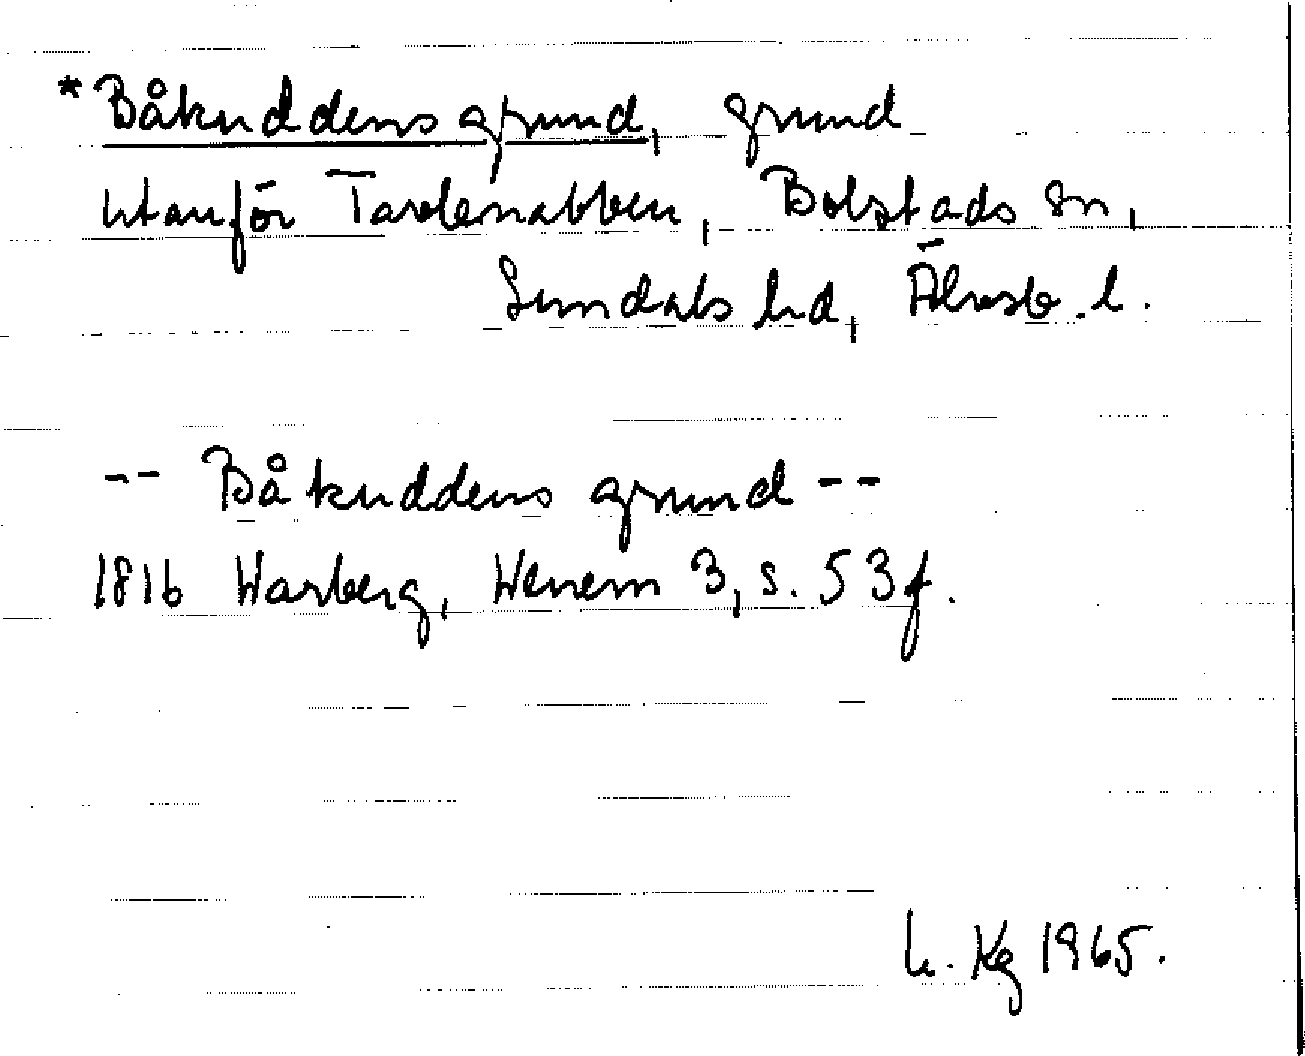 *Båkuddens grund, grund
utanför Tardenabben, Bolstads sn,
Sundals hd, Älvsb. l.
-- Båkuddens grund --
1816 Warberg, Wenern 3, s. 53 f.
L. Kg 1965.